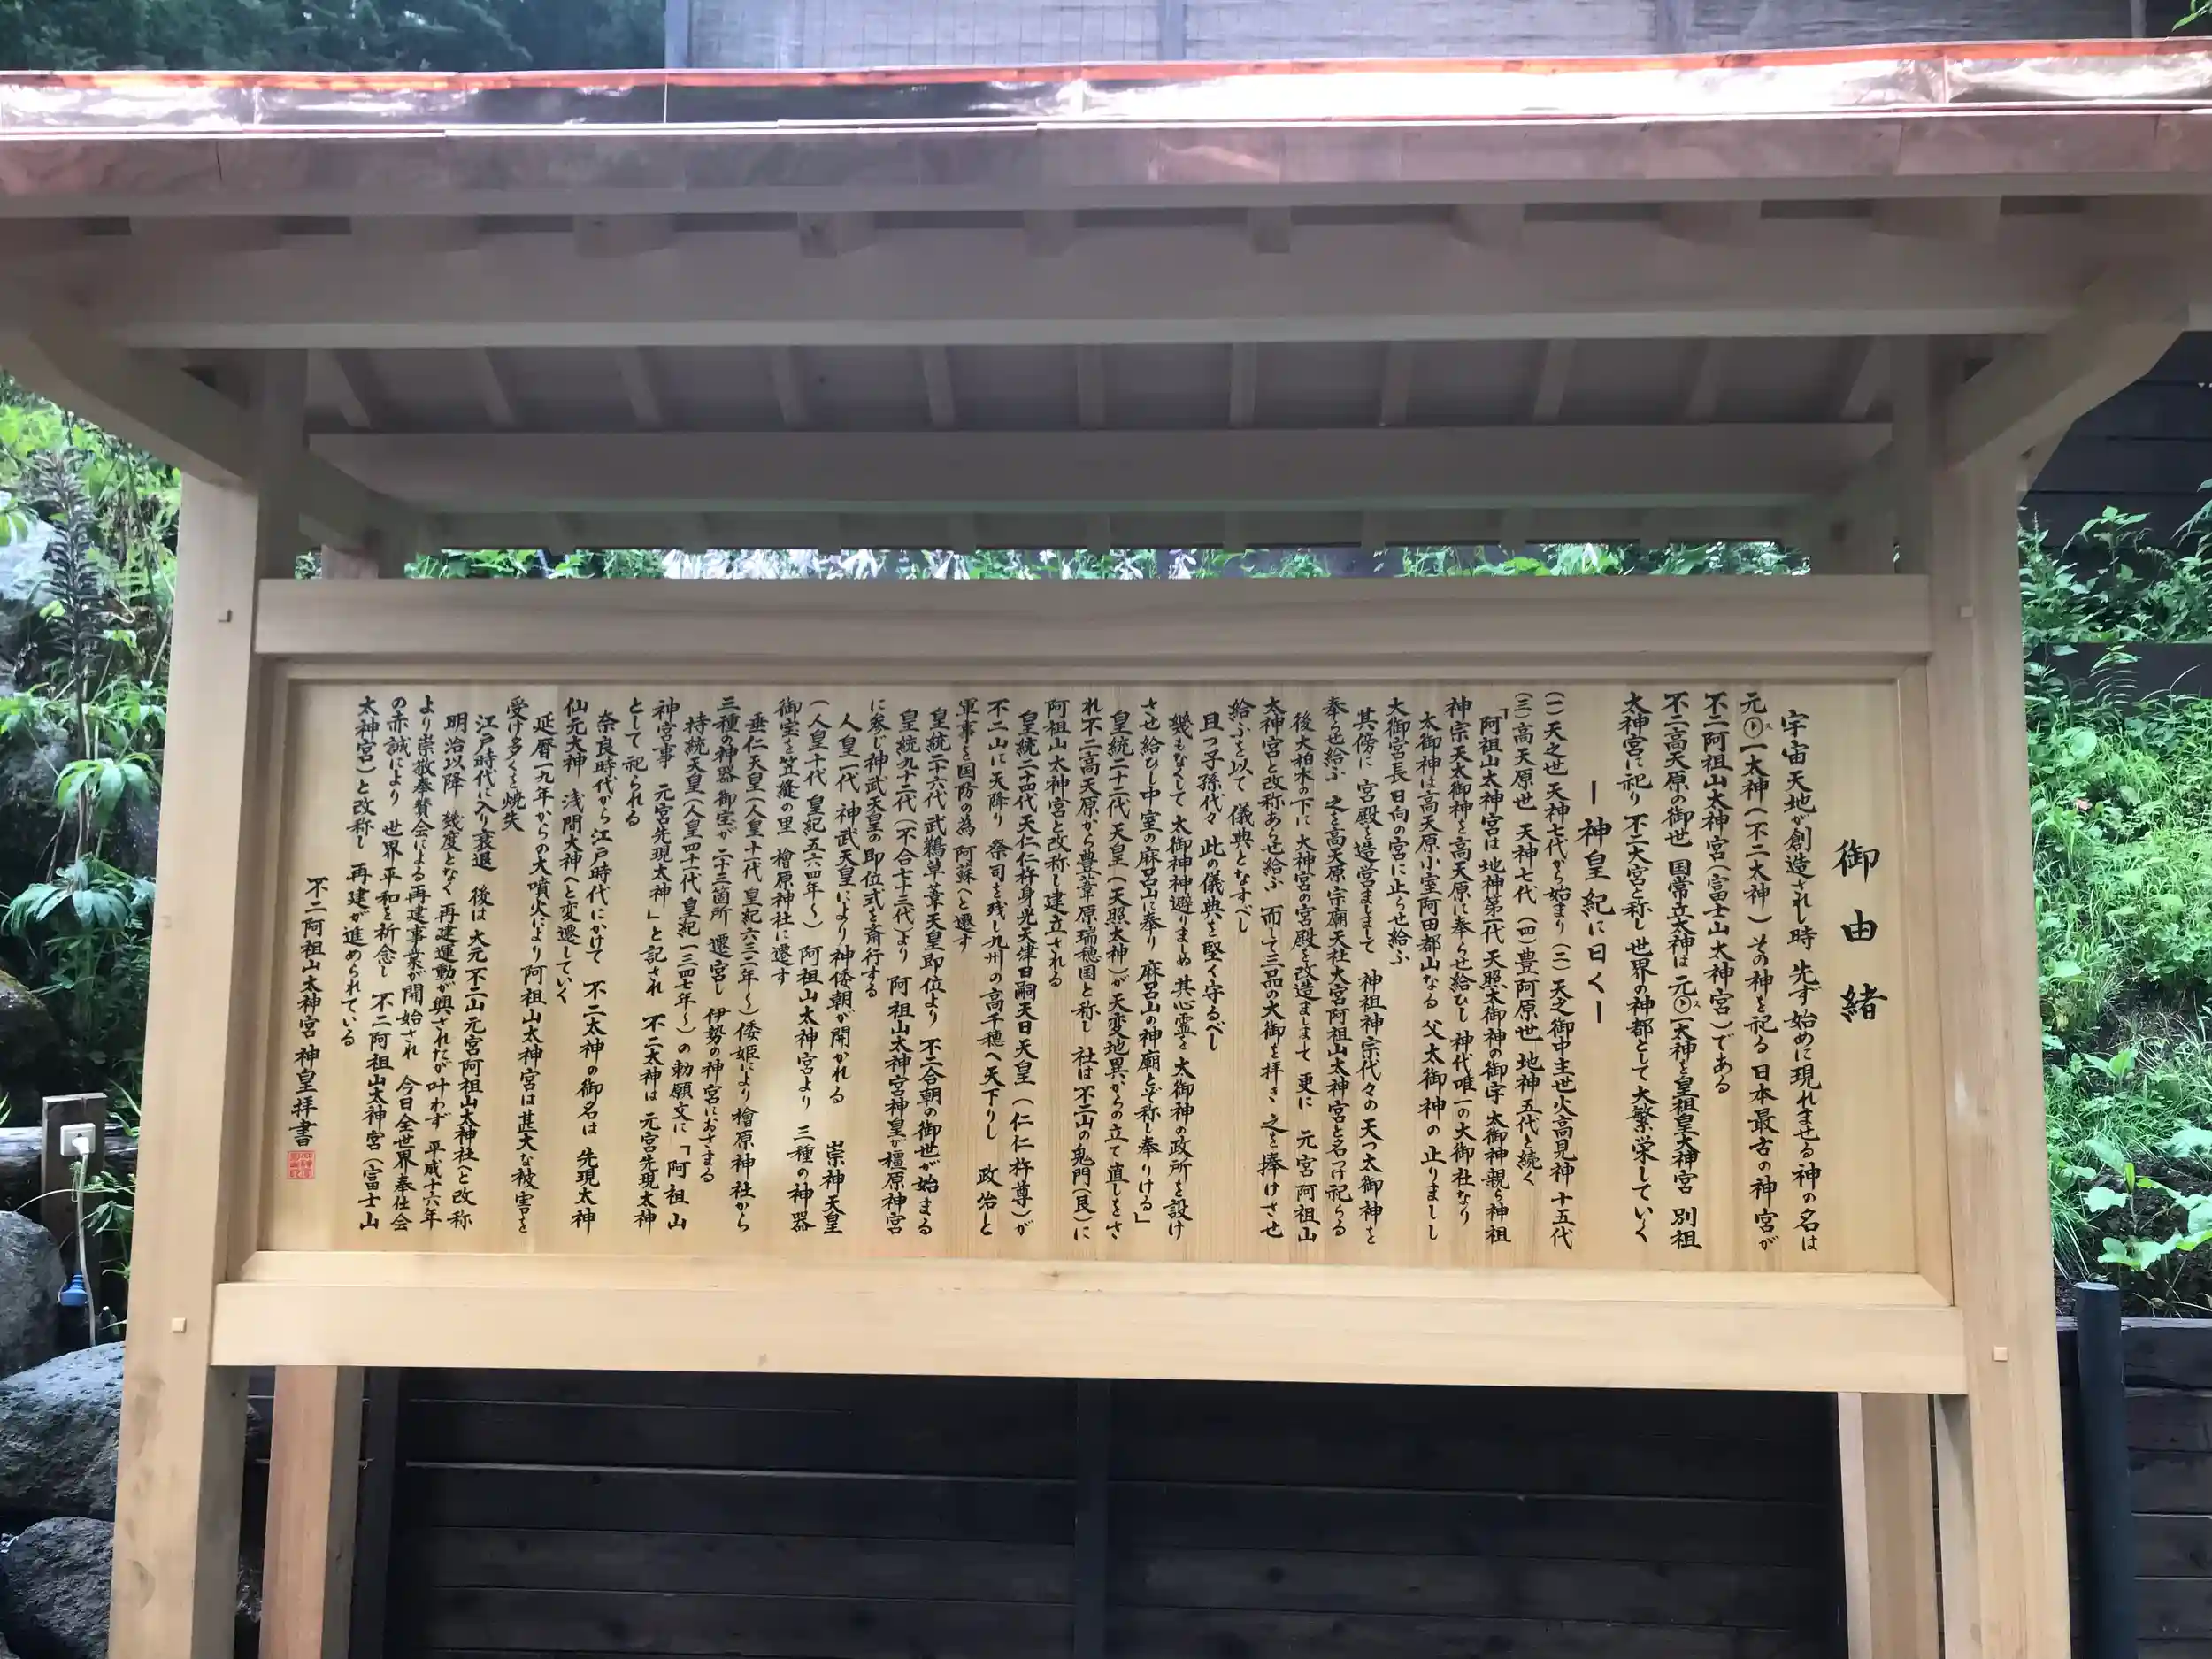 御由緒
宇宙天地が創造されし時 先ず始めに現れませる神の名は
元㋜一太神(不二太神)その神を祀る 日本最古の神宮が
不二阿祖山太神宮(富士山太神宮)である
不二高天原の御世 国常立太神は 元㋜一太神を皇祖皇太神宮 別祖
太神宮に祀り 不二大宮と称し 世界の神都として大繁栄していく
ー神皇紀に曰くー
(一)天之世 天神七代から始まり (二)天之御中主世 火高見神 十五代
(三)高天原世 天神七代 (四)豊阿原世 地神五代と続く
「阿祖山太神宮は 地神第一代 天照太御神の御宇 太御神親ら神祖
神宗天太御神を高天原に奉らせ給ひし 神代唯一の大御社なり
太御神は高天原小室阿田都山なる 父太御神の止りましし
大御宮長日向の宮に止らせ給ふ
其傍に 宮殿を造営ましまして 神祖神宗代々の天つ太御神を
奉らせ給ふ 之を高天原宗廟天社大宮阿祖山太神宮と名づけ祀らる
後大柏木の下に 大神宮の宮殿を改造ましまして 更に 元宮阿祖山
太神宮と改称あらせ給ふ 而して三品の大御を拝き 之を捧けさせ
給ふを以て 儀典となすべし
且つ子孫代々 此の儀典を堅く守るべし
幾もなくして 太御神神避りましぬ 其心霊を 太御神の政所を設け
させ給ひし中室の麻呂山に奉り 麻呂山の神廟とぞ称し奉りける」
皇統二十二代 天皇(天照太神)が天変地異からの立て直しをさ
れ不二高天原から豊葦原瑞穂国と称し 社は不二山の鬼門(艮)に
阿祖山太神宮と改称し建立される
皇統二十四代天仁仁杵身光天津日嗣天日天皇(仁仁杵尊)が
不二山に天降り 祭司を残し九州の高千穂へ天下りし 政治と
軍事を国防の為 阿蘇へと遷す
皇統二十六代 武鵜草葺葦天皇即位より 不二合朝の御世が始まる
皇統九十二代(不合七十三代)より 阿祖山太神宮神皇が橿原神宮
に参じ神武天皇の即位式を斎行する
人皇一代 神武天皇により 神倭朝が開かれる 崇神天皇
(人皇十代 皇紀五六四年〜) 阿祖山太神宮より 三種の神器
御宝を笠縫の里 檜原神社に遷す
垂仁天皇(人皇十一代 皇紀六三二年〜)倭姫により檜原神社から
三種の神器 御宝が 二十三箇所 遷宮し 伊勢の神宮におさまる
持統天皇(人皇四十一代 皇紀一三四七年〜)の勅願文に「阿祖山
神宮事 元宮先現太神」と記され 不二太神は 元宮先現太神
として祀られる
奈良時代から江戸時代にかけて 不二太神の御名は 先現太神
仙元大神 浅間大神へと変遷していく
延暦一九年からの大噴火により阿祖山太神宮は甚大な被害を
受け多くを焼失
江戸時代に入り衰退 後は大元不二山元宮阿祖山太神社と改称
明治以降 幾度となく再建運動が興されたが叶わず 平成十六年
より崇敬奉賛会による再建事業が開始され 今日全世界奉仕会
の赤誠により 世界平和を祈念し 不二阿祖山太神宮(富士山
太神宮)と改称し 再建が進められている
不二阿祖山太神宮 神皇拝書